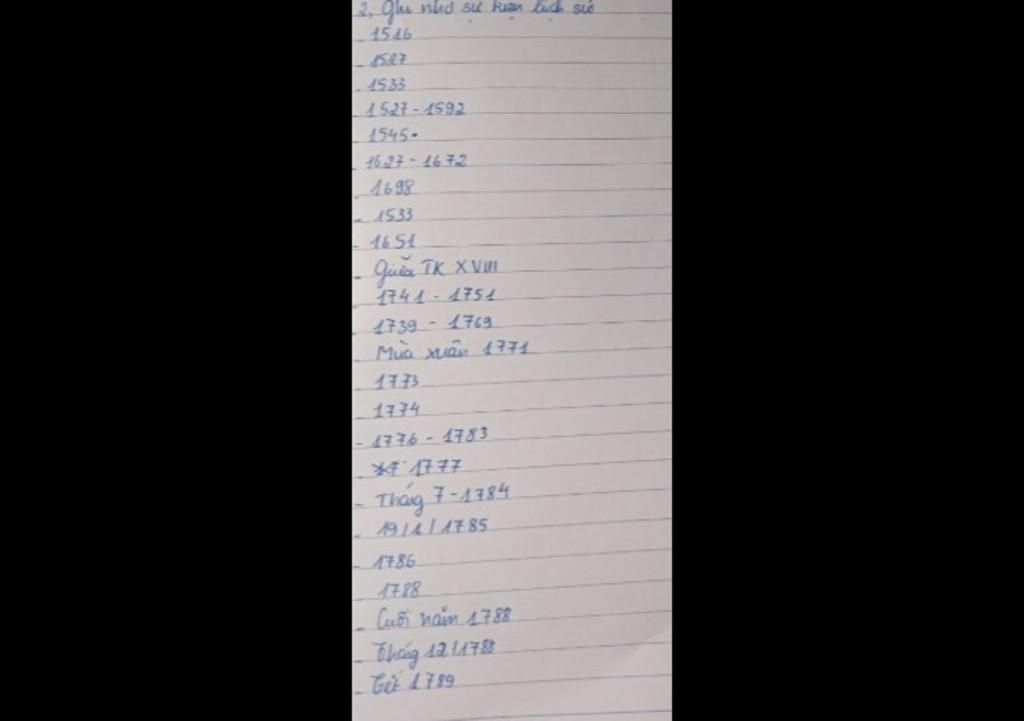 2, Ghi nhớ sự kiện lịch sử
- 1516
- 1527
- 1533
1527 - 1592
- 1545.
1627 - 1672
- 1698
- 1533
- 1651
- Giữa TK XVIII
- 1741 - 1751
- 1739 - 1769
Mùa xuân 1771
- 1773
- 1774
- 1776 - 1783
1777
- Tháng 7 - 1784
- 19/1/1785
- 1786
- 1788
- Cuối năm 1788
- Tháng 12/1788
- Tết 1789